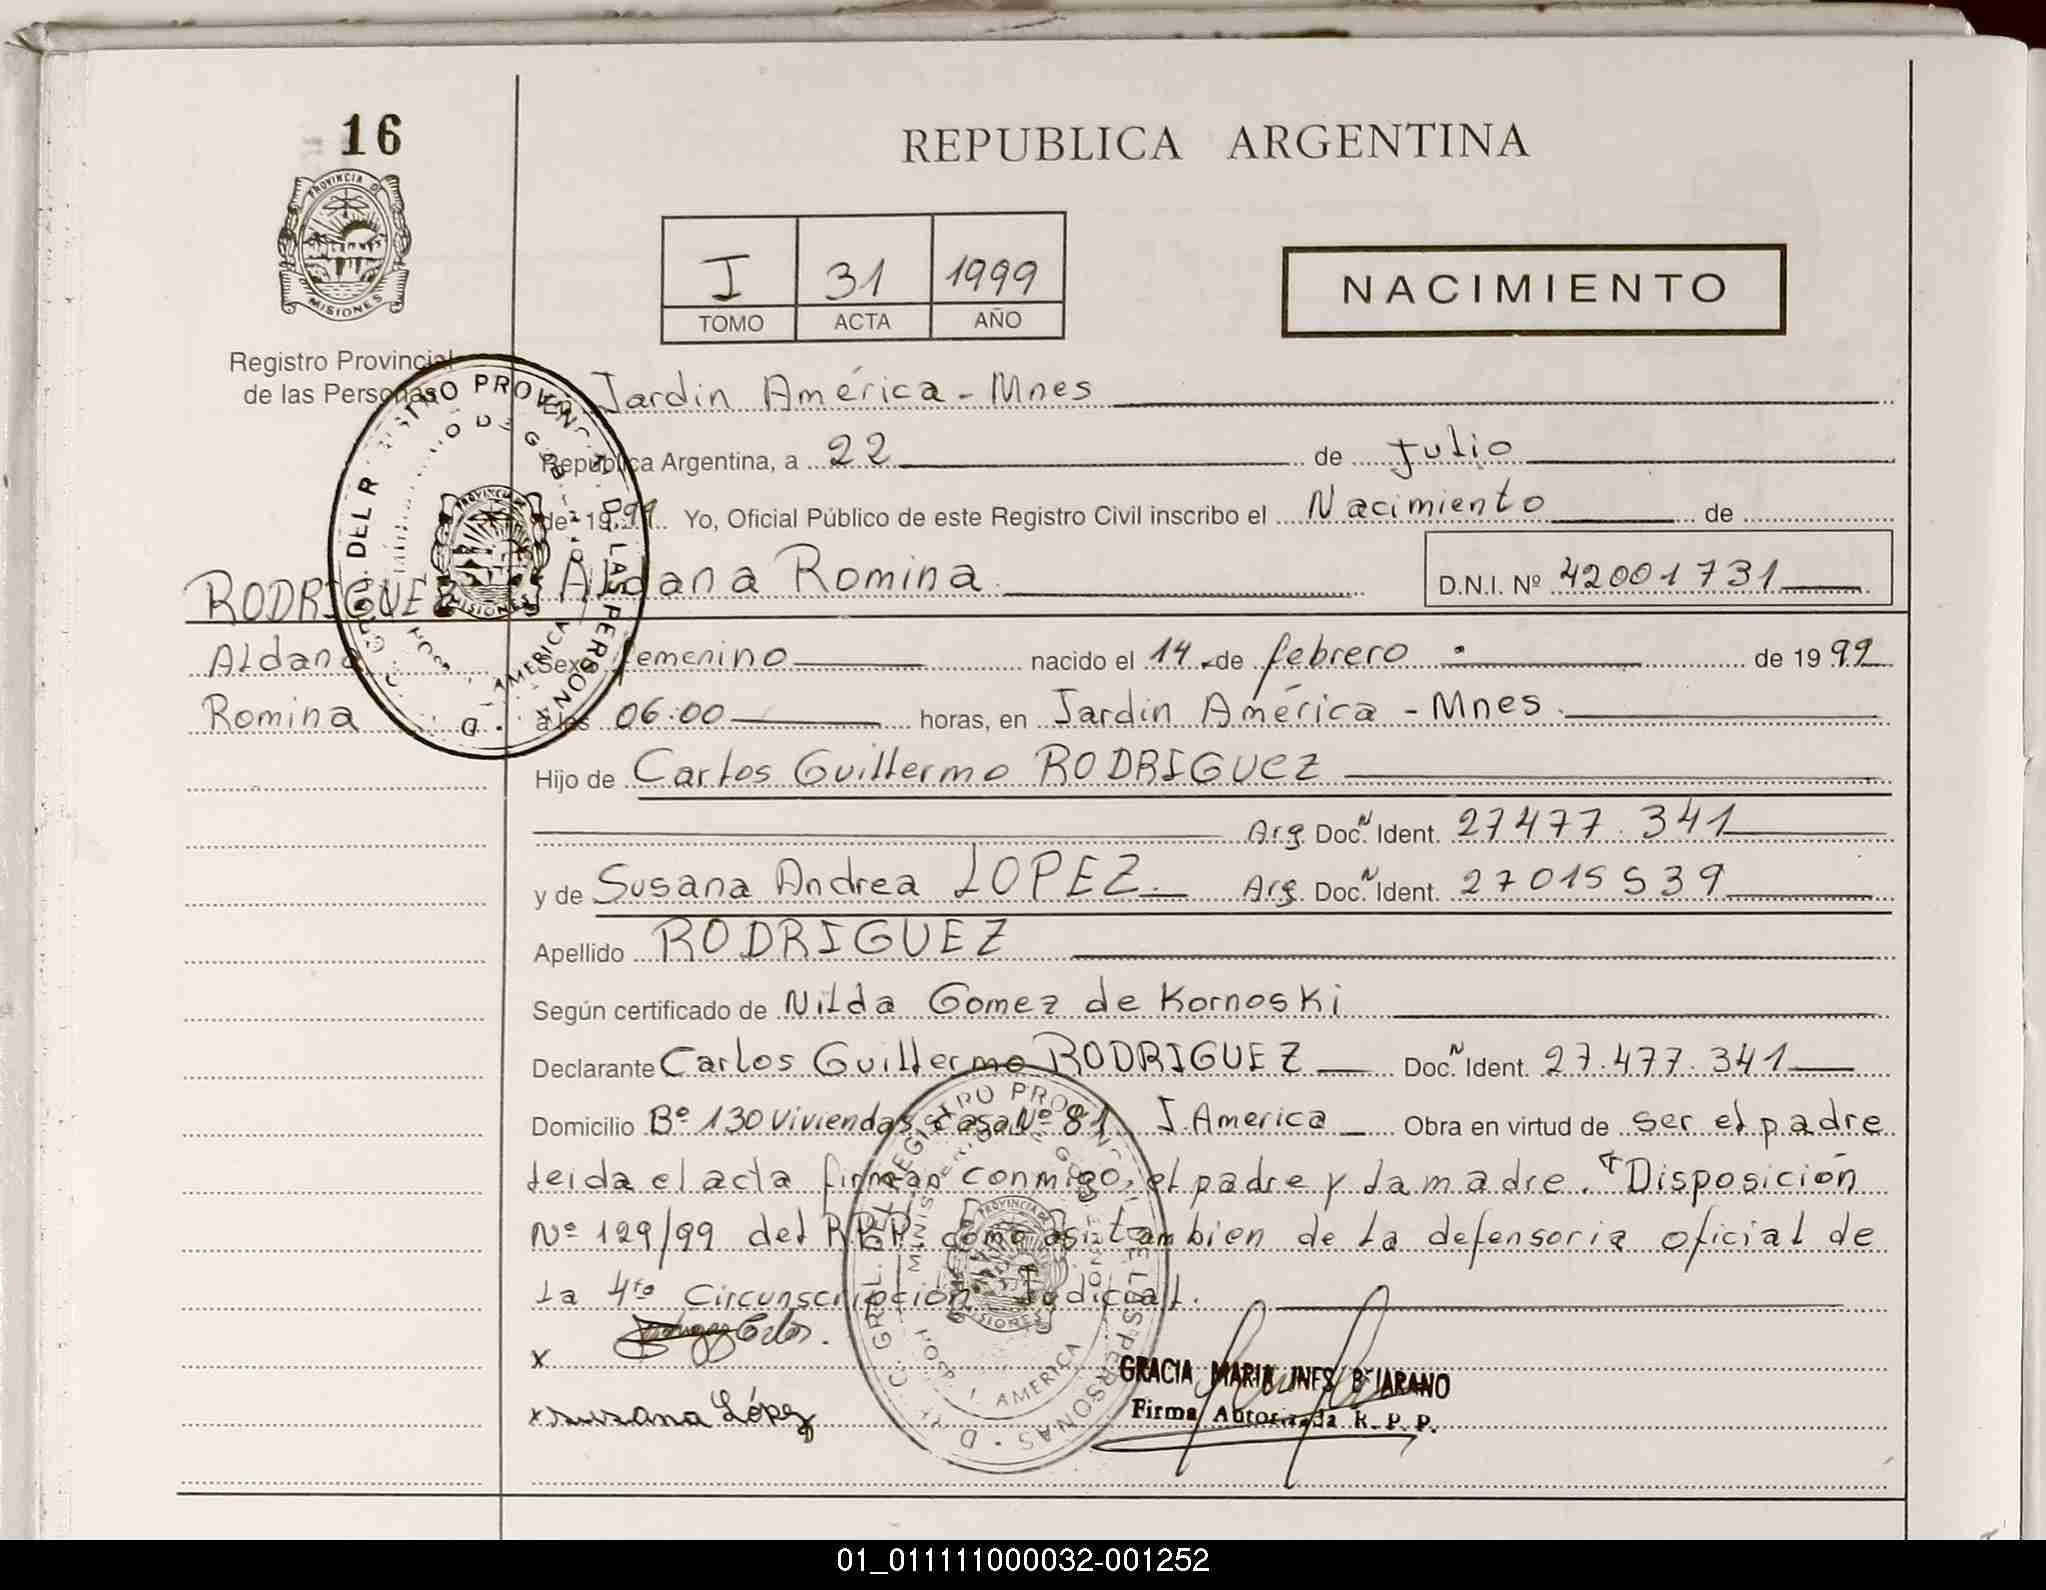 16
REPUBLICA ARGENTINA
PROVINCIA DE
MISIONES
I 31 1999
TOMO ACTA AÑO
NACIMIENTO
Registro Provincial
de las Personas
En Jardin América - Mnes
República Argentina, a 22 de Julio
de 1999. Yo, Oficial Público de este Registro Civil inscribo el Nacimiento de
RODRIGUEZ Aldana Romina D.N.I. Nº 42001731
Aldana Sexo femenino nacido el 14 de febrero de 1999
Romina a las 06:00 horas, en Jardin América - Mnes.
Hijo de Carlos Guillermo RODRIGUEZ
Arg. Doc. N Ident. 27477.341
y de Susana Andrea LOPEZ. Arg. Doc. N Ident. 27015539
Apellido RODRIGUEZ
Según certificado de Nilda Gomez de Kornoski
Declarante Carlos Guillermo RODRIGUEZ Doc. N Ident. 27.477.341
Domicilio Bº 130 Viviendas Casa Nº 81 J. America Obra en virtud de ser el padre
leida el acta firman conmigo, el padre y la madre. Disposición
Nº 129/99 del R.P.P. como asi tambien de la defensoria oficial de
la 4ta Circunscripción Judicial.
x Carlos.
x Susana López
GRACIA MARIA INES BEJARANO
Firma Autorizada R. P. P.
01_011111000032-001252